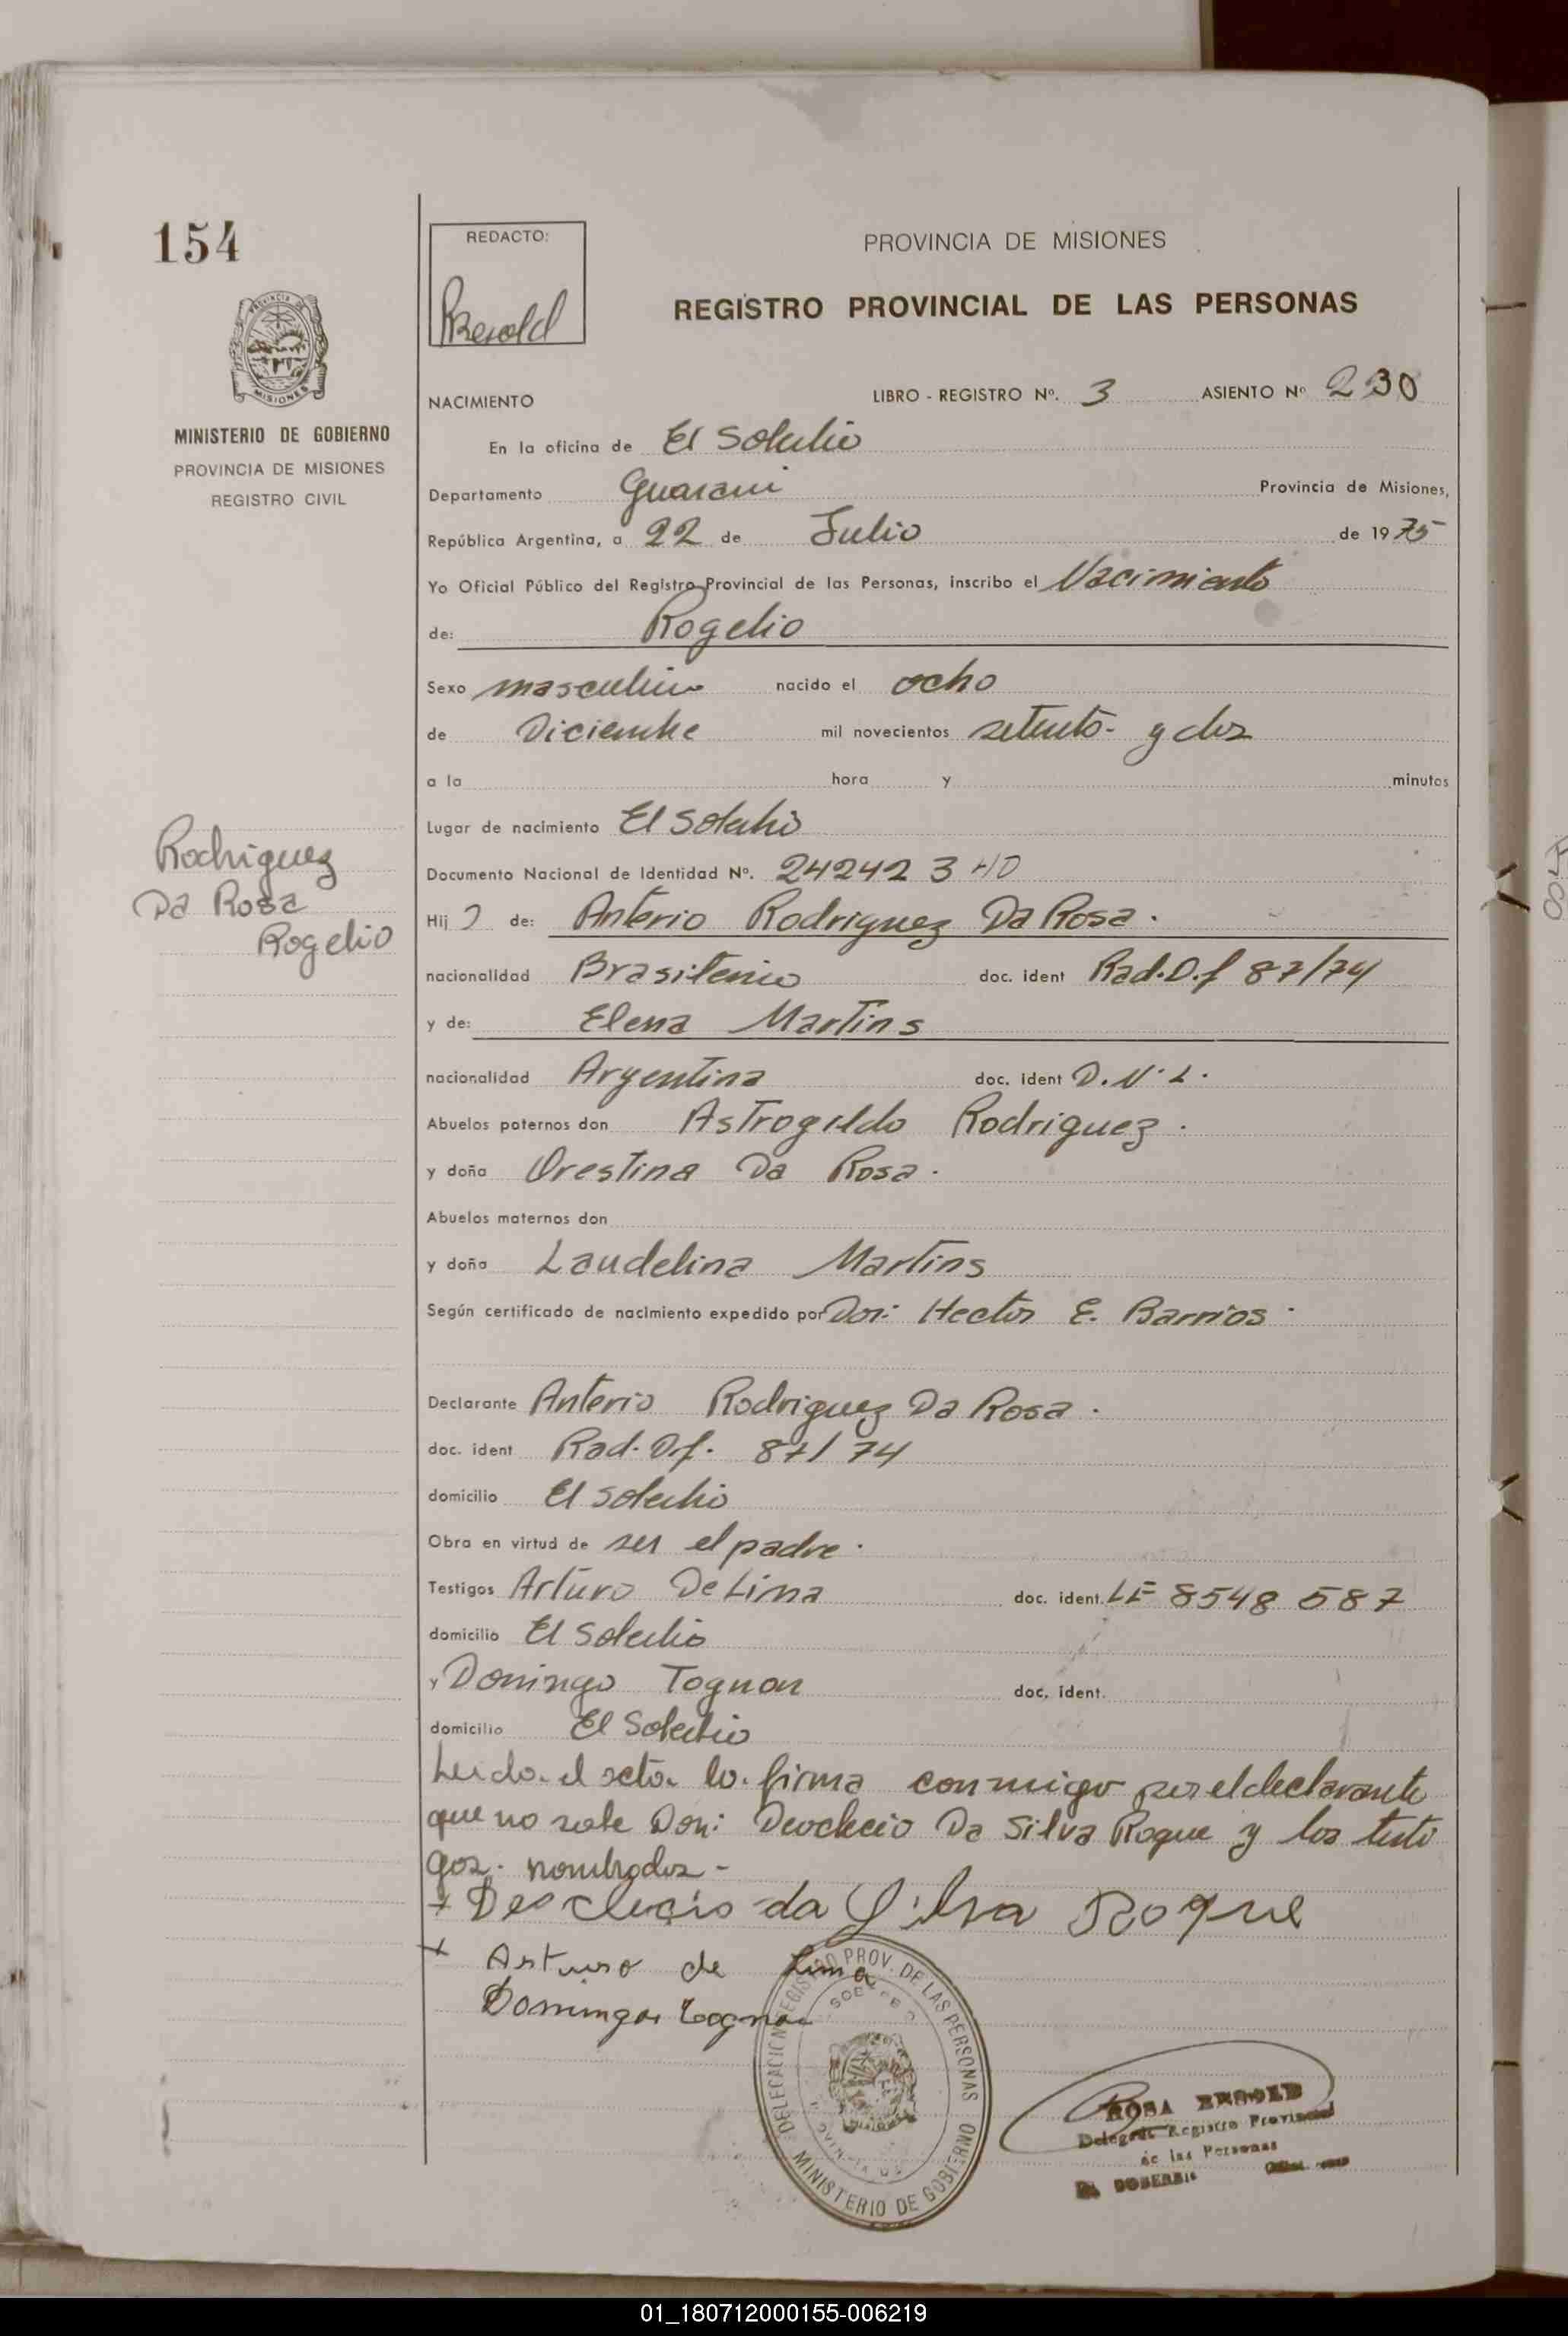 154
REDACTO:
PROVINCIA DE MISIONES
REGISTRO PROVINCIAL DE LAS PERSONAS
MINISTERIO DE GOBIERNO
PROVINCIA DE MISIONES
REGISTRO CIVIL
NACIMIENTO LIBRO - REGISTRO Nº. 3 ASIENTO Nº 230
En la oficina de El Soberbio
Departamento Guarani Provincia de Misiones,
República Argentina, a 22 de Julio de 1975
Yo Oficial Público del Registro Provincial de las Personas, inscribo el Nacimiento
de: Rogelio
Sexo masculino nacido el ocho
de Diciembre mil novecientos setenta y dos
a la hora y minutos
Lugar de nacimiento El Soberbio
Documento Nacional de Identidad Nº. 24242340
Rodriguez
Da Rosa
Rogelio
Hijo de: Anterio Rodriguez Da Rosa.
nacionalidad Brasileño doc. ident Rad.D.f 87/74
y de: Elena Martins
nacionalidad Argentina doc. ident
Abuelos paternos don Astrogildo Rodriguez.
y doña Orestina Da Rosa.
Abuelos maternos don
y doña Laudelina Martins
Según certificado de nacimiento expedido por Don: Hector E. Barrios
Declarante Anterio Rodriguez Da Rosa.
doc. ident Rad. D.f. 87/74
domicilio El Soberbio
Obra en virtud de ser el padre.
Testigos Arturo De Lima doc. ident. LE 8548587
domicilio El Soberbio
y Domingo Tognon doc. ident.
domicilio El Soberbio
Leida el acta la firma conmigo por el declarante
que no sabe Don: Deoclecio Da Silva Roque y los testi
gos. nombrados -
+ Deoclecio da Silva Roque
+ Arturo de Lima
Domingos Tognon
DELEGACION REGISTRO PROV. DE LAS PERSONAS
MINISTERIO DE GOBIERNO
ROSA
Registro Provincial
de las Personas
01_180712000155-006219